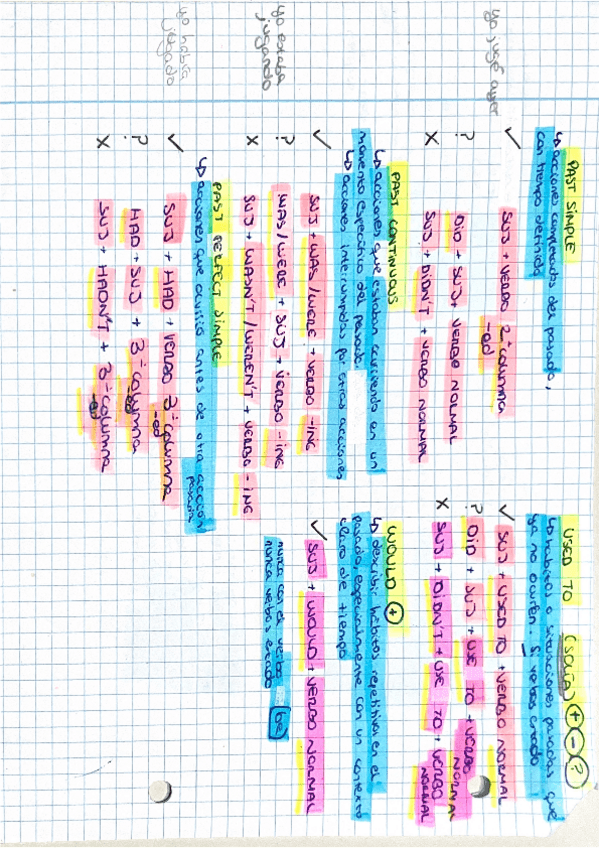 PAST SIMPLE
↳ acciones completadas del pasado,
con tiempo definido
yo jugé ayer
✓ SUJ + VERBO 2ª columna
-ed
? DID + SUJ + VERBO NORMAL
X SUJ + DIDN'T + VERBO NORMAL
PAST CONTINUOUS
↳ acciones que estaban ocurriendo en un
momento específico del pasado
↳ acciones interrumpidas por otras acciones
yo estaba
jugando
✓ SUJ + WAS/WERE + VERBO -ING
? WAS/WERE + SUJ + VERBO -ING
X SUJ + WASN'T/WEREN'T + VERBO -ING
PAST PERFECT SIMPLE
↳ acciones que ocurrió antes de otra acción
pasada
yo había
jugado
✓ SUJ + HAD + VERBO 3ª columna
-ed
? HAD + SUJ + 3ª columna
-ed
X SUJ + HADN'T + 3ª columna
-ed
USED TO (SOLÍA) + - ?
↳ hábitos o situaciones pasadas que
ya no ocurren. Sí verbos estado
✓ SUJ + USED TO + VERBO NORMAL
? DID + SUJ + USE TO + VERBO
NORMAL
X SUJ + DIDN'T + USE TO + VERBO
NORMAL
WOULD +
↳ describir hábitos repetitivos en el
pasado, especialmente con un contexto
claro de tiempo
✓ SUJ + WOULD + VERBO NORMAL
nunca con el verbo be
nunca verbos estado